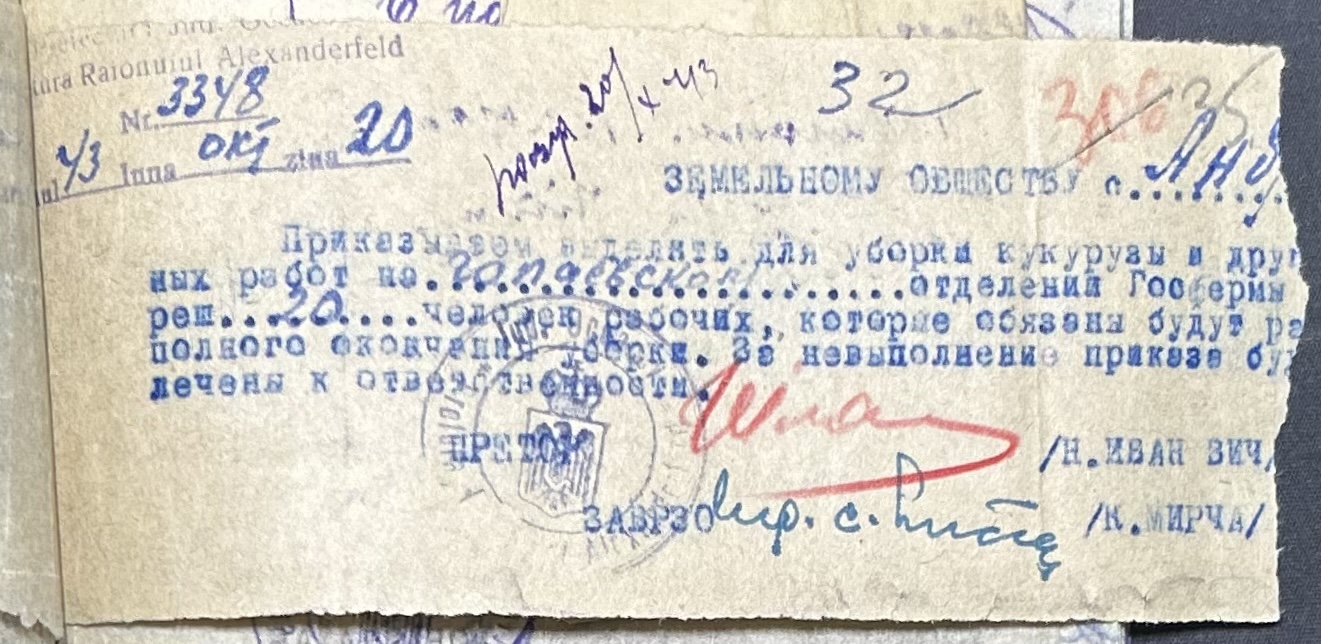 tura Raionului Alexanderfeld
Nr. 3348
43 luna okt ziua 20
32
308
ЗЕМЕЛЬНОМУ ОБЩЕСТВУ с.
Приказываем выделять для уборки кукурузы и дру
ных работ на отделении Госфермы
реш....20....человек рабочих, которые обязаны будут ра
полного окончания уборки. За невыполнение приказа бу
лечены к ответственности.
ПРЕТОР /Н.ИВАН ВИЧ/
ЗАВРЗО /К.МИРЧА/